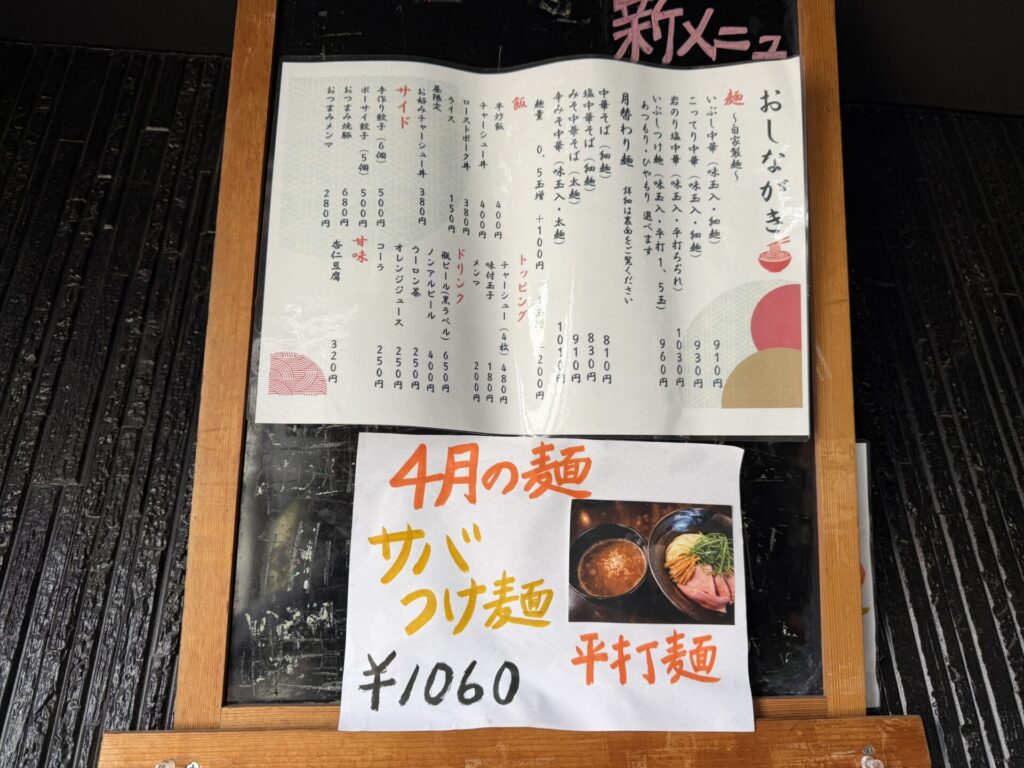 新メニュー
おしながき
麺 〜自家製麺〜
いぶし中華（味玉入・細麺） 910円
こってり中華（味玉入・細麺） 930円
岩のり塩中華（味玉入・平打ちぢれ） 1030円
いぶしつけ麺（味玉入・平打1、5玉） 960円
あつもり・ひやもり 選べます
月替わり麺 詳細は裏面をご覧ください
中華そば（細麺） 810円
塩中華そば（細麺） 830円
みそ中華そば（太麺） 910円
辛みそ中華（味玉入・太麺） 1010円
麺量 0.5玉増 +100円 1玉増 +200円
飯
半炒飯 400円
チャーシュー丼 400円
ローストポーク丼 380円
ライス 150円
昼限定
お好みチャーシュー丼 380円
サイド
手作り餃子（6個） 500円
ポーサイ餃子（5個） 500円
おつまみ焼豚 680円
おつまみメンマ 280円
トッピング
チャーシュー（4枚） 480円
味付玉子 180円
メンマ 200円
ドリンク
瓶ビール（黒ラベル） 650円
ノンアルビール 400円
ウーロン茶 250円
オレンジジュース 250円
コーラ 250円
甘味
杏仁豆腐 320円
4月の麺
サバ
つけ麺
¥1060
平打麺